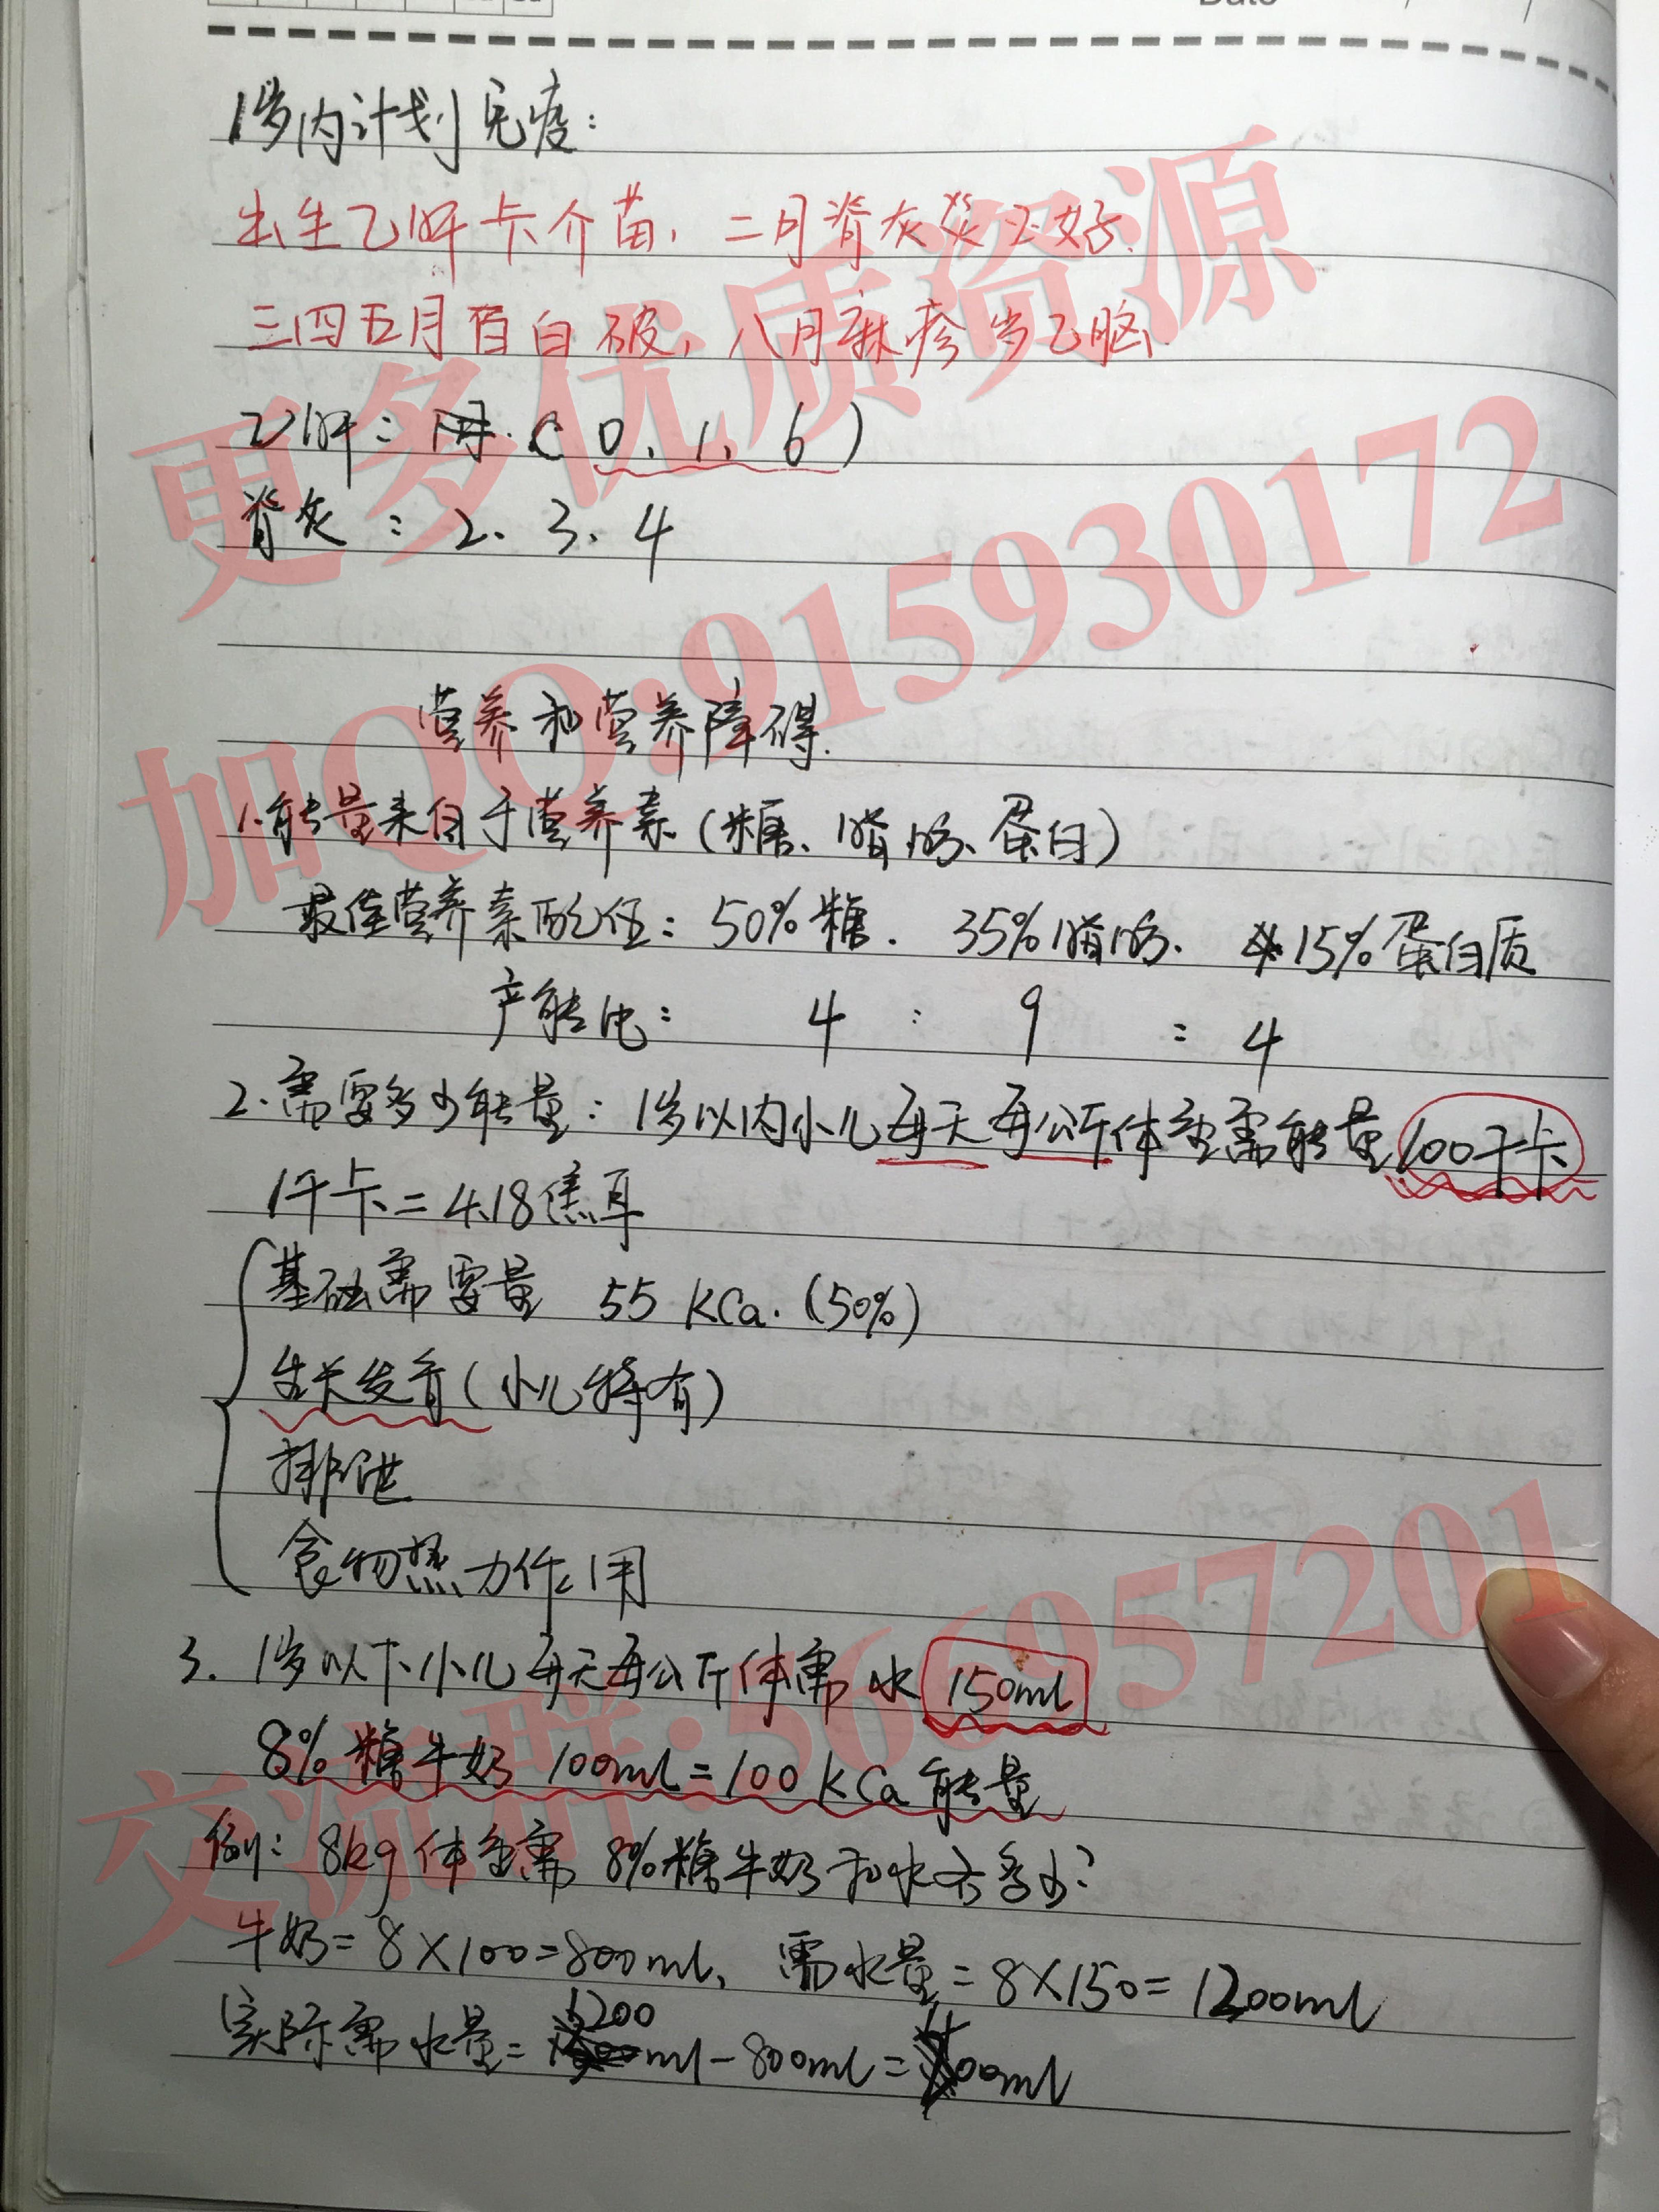 Date
1岁内计划免疫:
出生乙肝卡介苗, 二月脊灰炎正好.
三四五月百白破, 八月麻疹岁乙脑.
乙肝: (0、1、6)
脊灰: 2、3、4
营养和营养障碍.
1.能量来自于营养素(糖、脂肪、蛋白)
最佳营养素配伍: 50%糖. 35%脂肪. 15%蛋白质
产能比: 4 : 9 : 4
2.需要多少能量: 1岁以内小儿每天每公斤体重需能量100千卡
1千卡=4.18焦耳
基础需要量 55 KCa. (50%)
生长发育(小儿特有)
排泄
食物热力作用
3. 1岁以下小儿每天每公斤体需水 150ml
8%糖牛奶 100ml=100 KCa 能量
例: 8kg体重需 8%糖牛奶和水各多少?
牛奶=8×100=800ml, 需水量=8×150=1200ml
实际需水量=1200ml-800ml=400ml
更多优质资源
加QQ:915930172
交流群:566957201